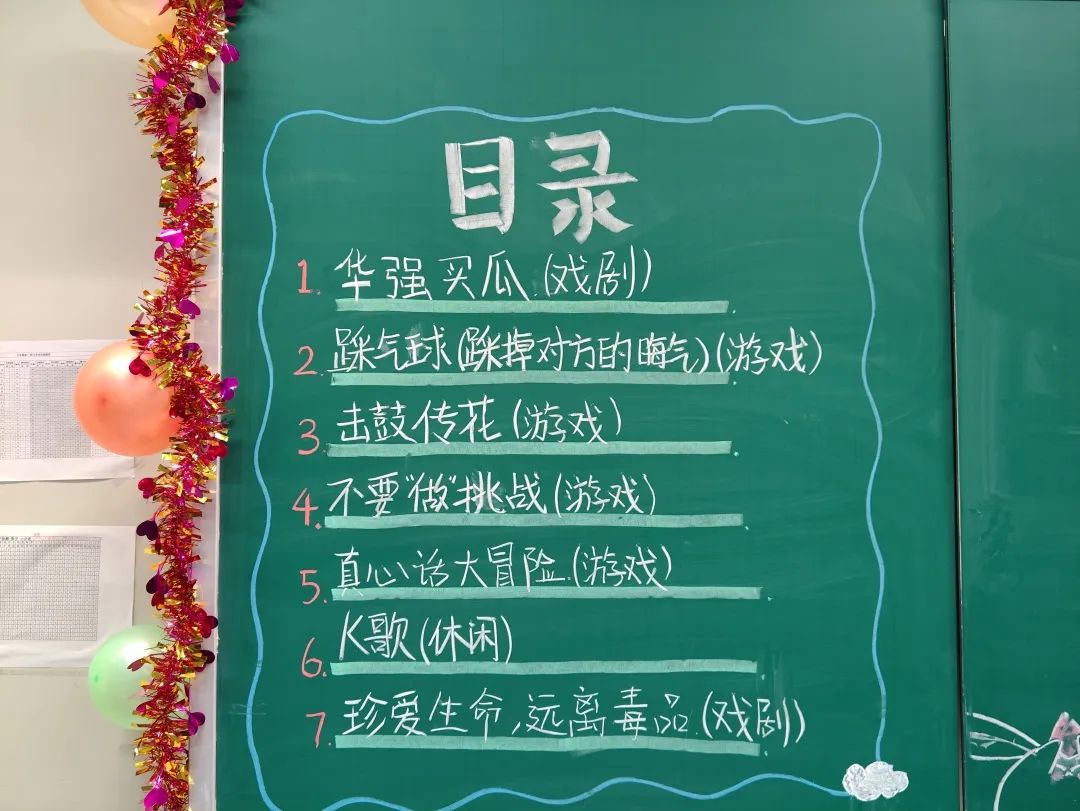 目录
1. 华强买瓜.(戏剧)
2. 踩气球(踩掉对方的晦气)(游戏)
3. 击鼓传花(游戏)
4. 不要"做"挑战(游戏)
5. 真心话大冒险.(游戏)
6. K歌(休闲)
7. 珍爱生命,远离毒品.(戏剧)